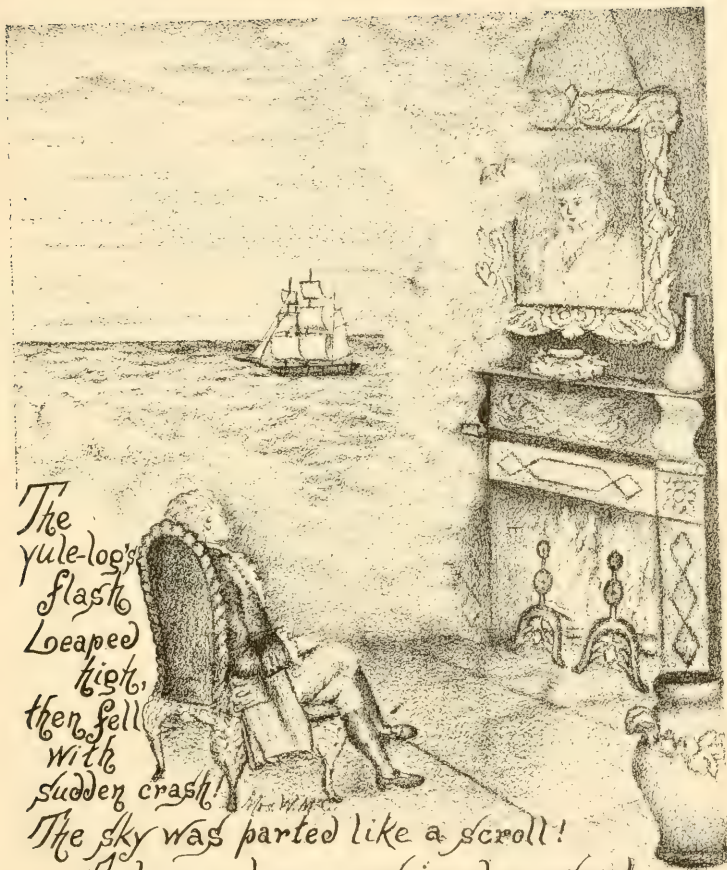 The
yule-log's
flash
Leaped
high,
then fell
with
sudden crash!
Mrs. W. M.
The sky was parted like a scroll!